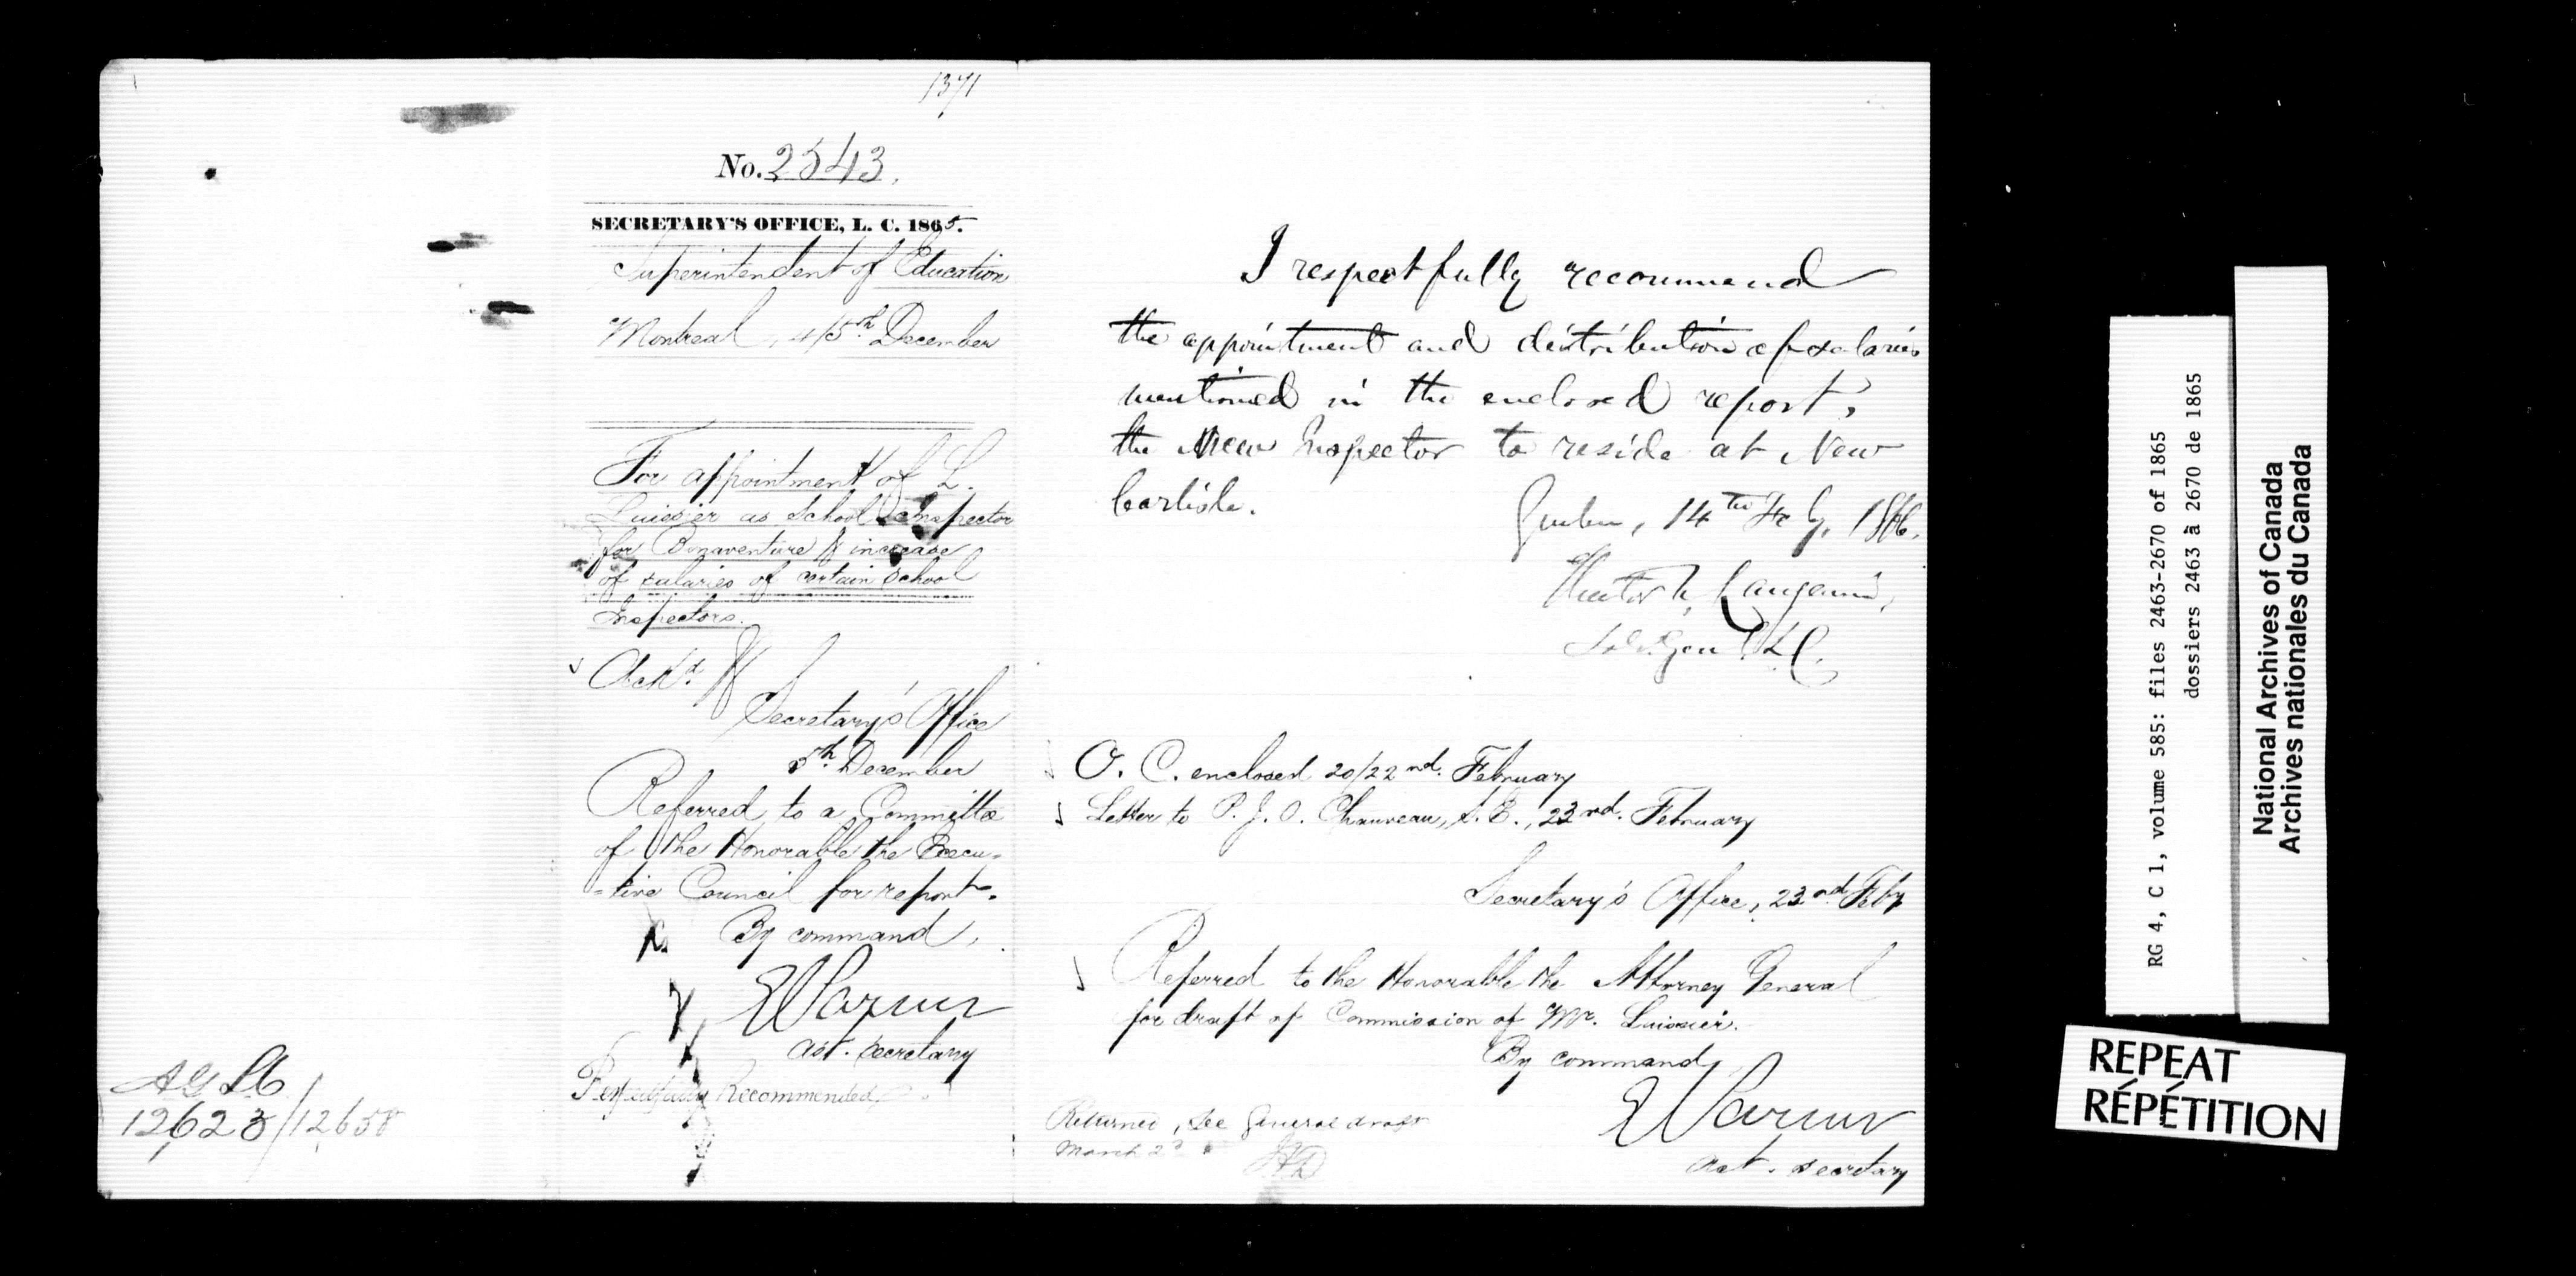 1371
No. 2543.
SECRETARY'S OFFICE, L. C. 1865.
Superintendent of Education
Montreal, 4/5th December
For appointment of L.
Luissier as School Inspector
for Bonaventure & increase
of salaries of certain school
Inspectors.
Ackd.
Secretary's Office
5th December
Referred to a Committee
of the Honorable the Execu-
-tive Council for report.
By command,
act. secretary
Respectfully Recommended
A G L C
12623/12658
I respectfully recommend
the appointment and distribution of salaries
mentioned in the enclosed report,
the New Inspector to reside at New
Carlisle.
Quebec, 14th Feby. 1866.
Hector L. Langevin,
Sol. Genl. L C.
O. C. enclosed 20/22nd. February
Letter to P. J. O. Chauveau, S. E., 23rd. February
Secretary's Office, 23rd Feby
Referred to the Honorable the Attorney General
for draft of Commission of Mr. Luissier.
By command,
act. secretary
Returned, see General draft
March 2d
RG 4, C 1, volume 585: files 2463-2670 of 1865
dossiers 2463 à 2670 de 1865
National Archives of Canada
Archives nationales du Canada
REPEAT
RÉPÉTITION